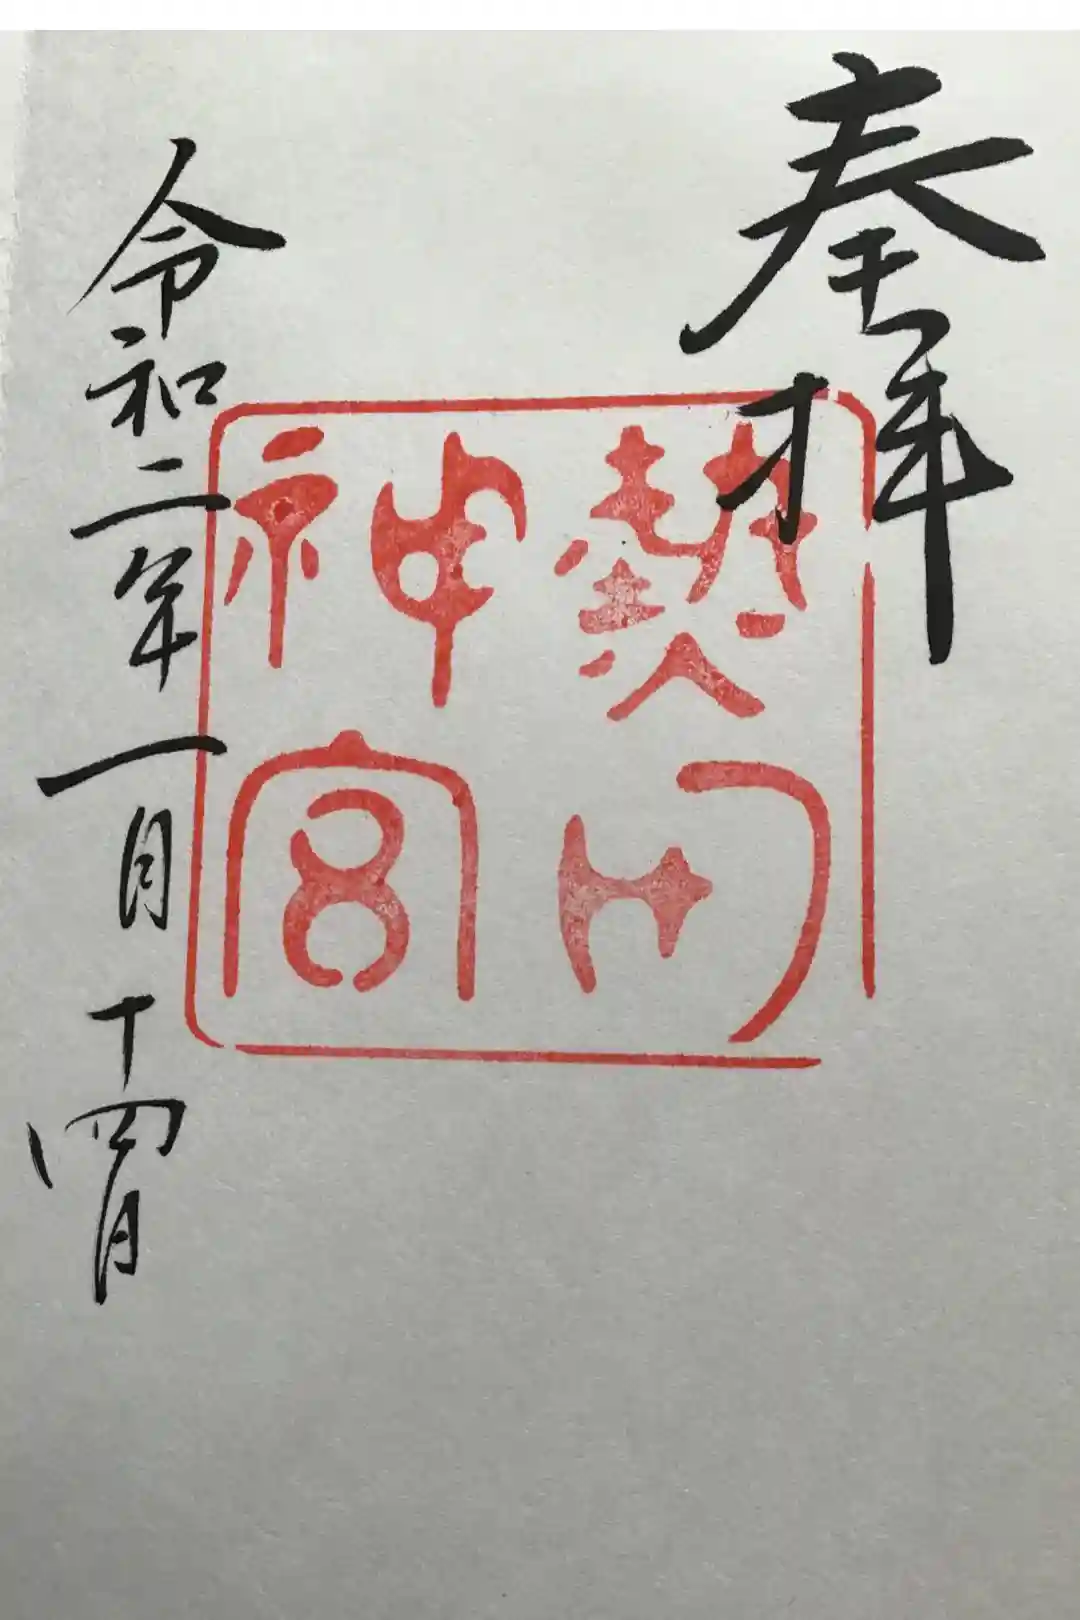 奉拝
熱田
神宮
令和二年一月十四日